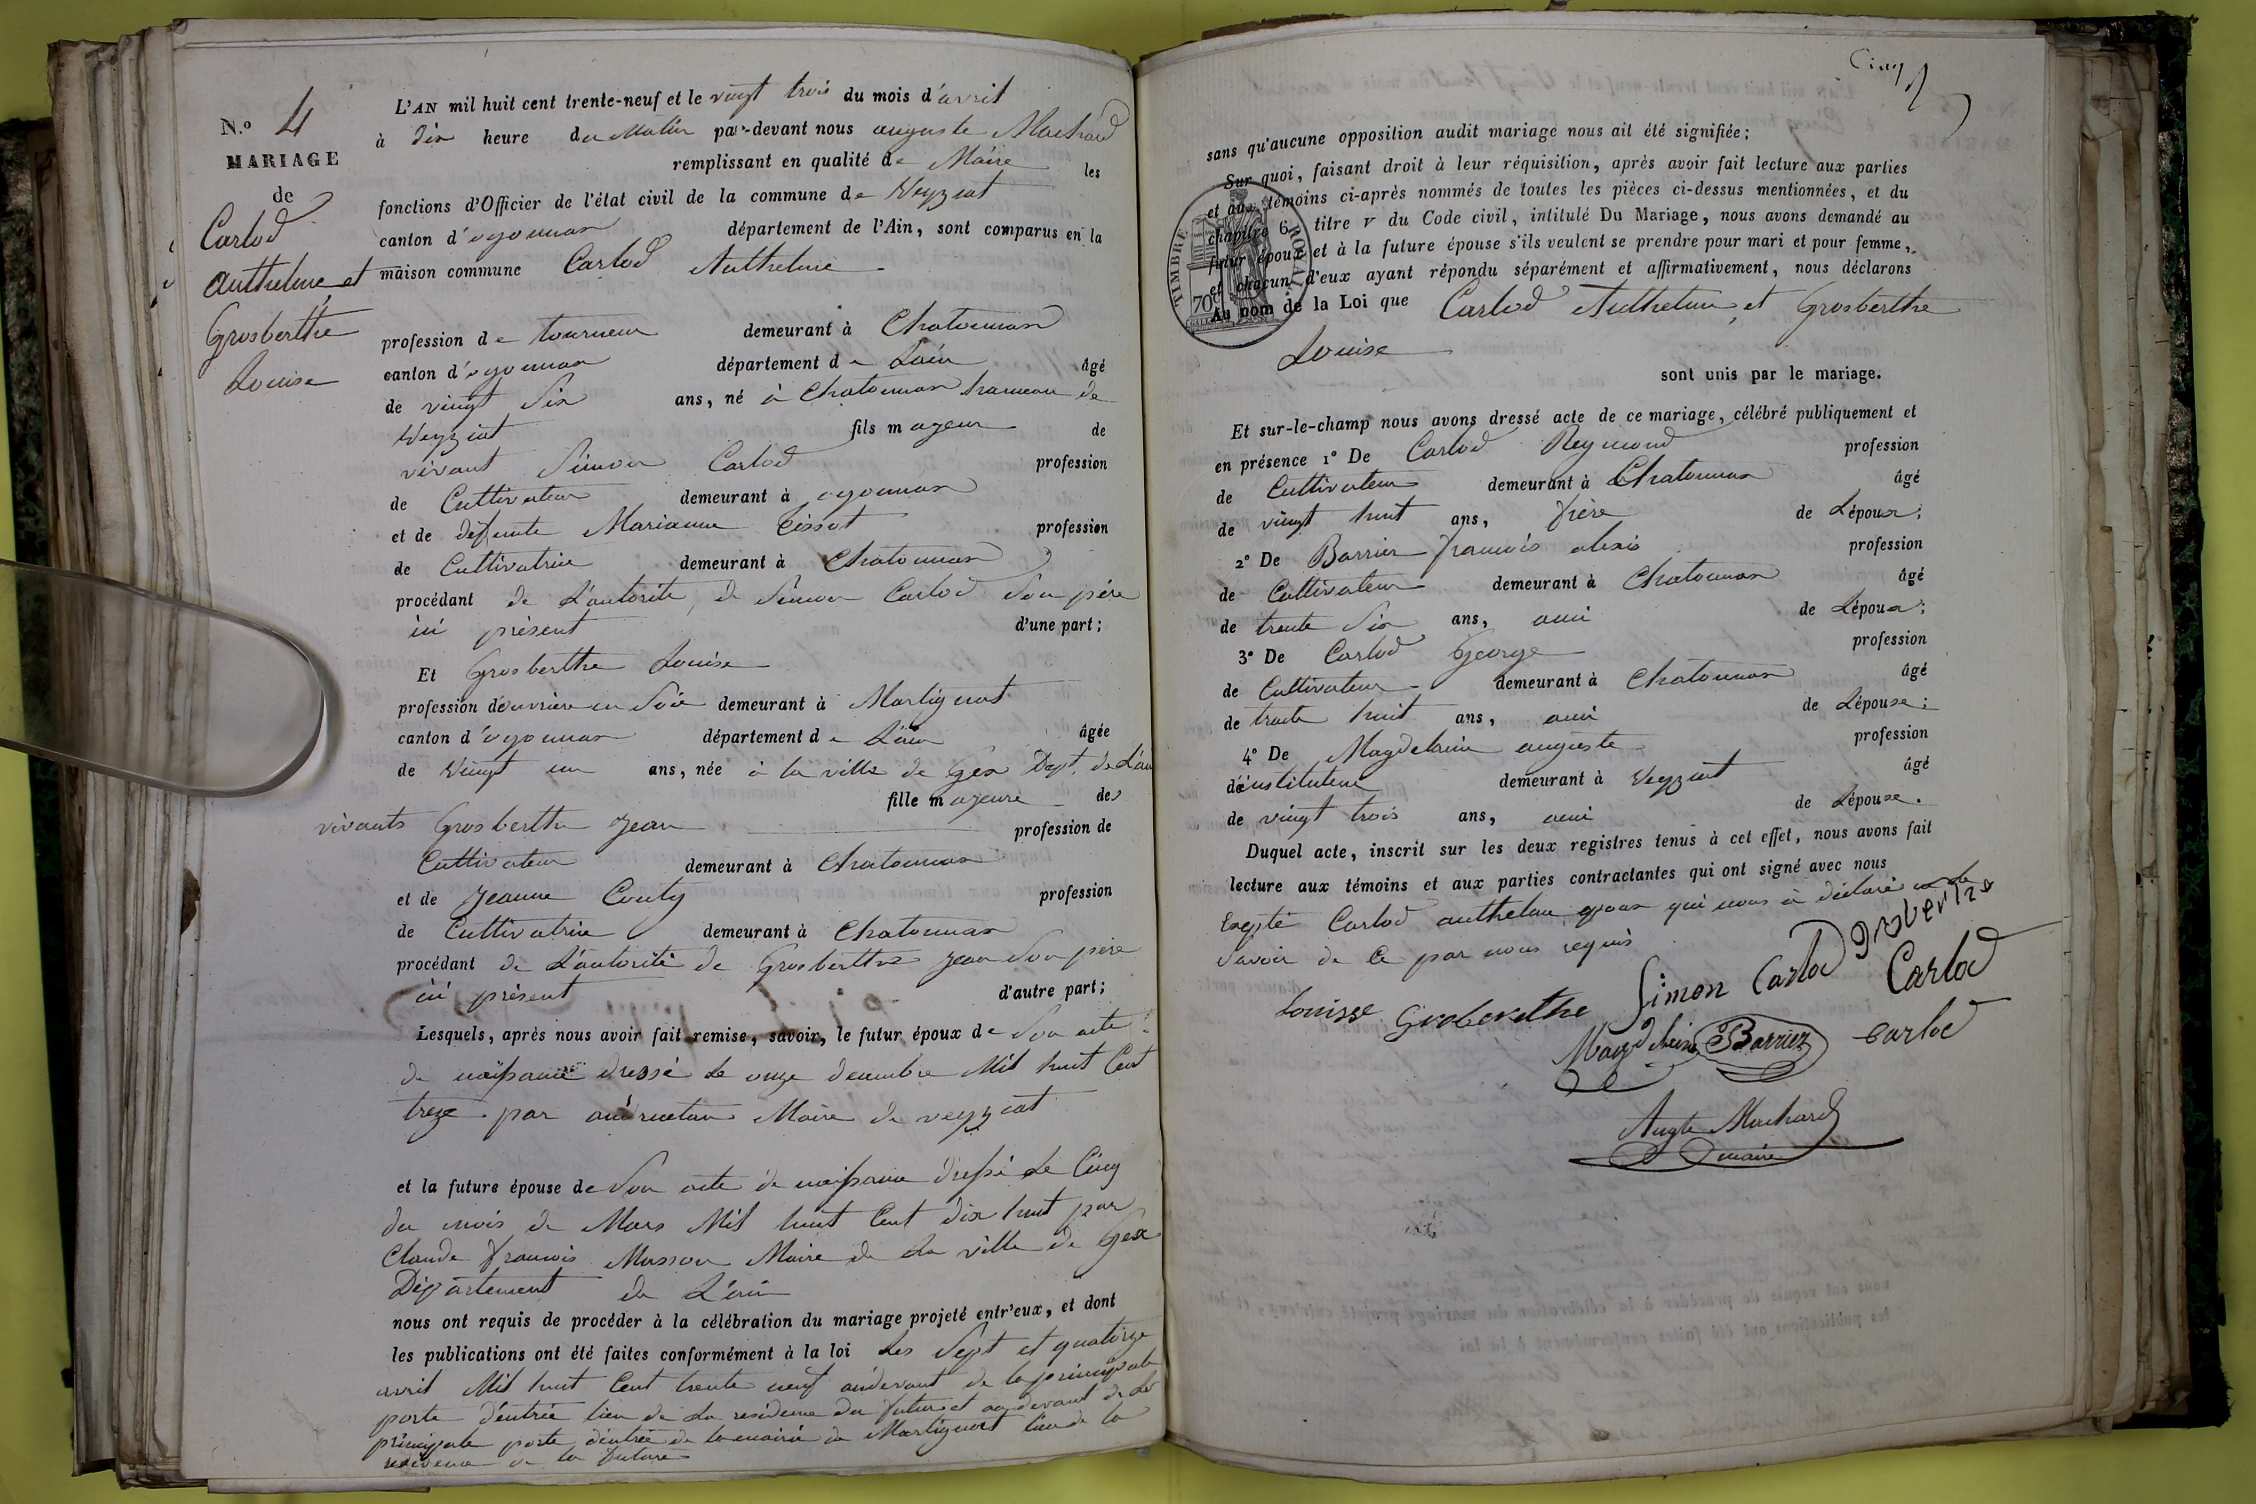 N.º 4
MARIAGE
de
Carlod
Anthelme et
Grosberthe
Louise
L'AN mil huit cent trente-neuf et le vingt trois du mois d'avril
à dix heure du Matin par-devant nous auguste Machard
remplissant en qualité de Maire les
fonctions d'Officier de l'état civil de la commune de Veyziat
canton d'oyonnax département de l'Ain, sont comparus en la
maison commune Carlod Anthelme
profession de tourneur demeurant à Chatonnax
canton d'oyonnax département de Lain âgé
de vingt Six ans, né à Chatonnax hameau de
Veyziat fils mageur de
vivant Simon Carlod profession
de Cultivateur demeurant à oyonnax
et de defunte Marianne Tissot profession
de Cultivatrice demeurant à Chatonnax
procédant de L'autorité de Simon Carlod Son père
ici présent d'une part;
Et Grosberthe Louise
profession d'ouvrière en Soie demeurant à Martignat
canton d'oyonnax département de Lain âgée
de Vingt un ans, née à la ville de Gex Dept. de L'ain
fille mageure des
vivants Grosberthe Jean profession de
Cultivateur demeurant à Chatonnax
et de Jeanne Couty profession
de Cultivatrice demeurant à Chatonnax
procédant de L'autorité de Grosberthe Jean Son père
ici présent d'autre part;
Lesquels, après nous avoir fait remise, savoir, le futur époux de Son acte
de naissance dressé Le onze decembre Mil huit Cent
treze par Maire de veyziat
et la future épouse de Son acte de naissance dressé Le Cinq
du mois de Mars Mil huit Cent dix huit par
Claude françois Masson Maire de La ville de Gex
Département de L'ain
nous ont requis de procéder à la célébration du mariage projeté entr'eux, et dont
les publications ont été faites conformément à la loi Les Sept et quatorze
avril Mil huit Cent trente neuf audevant de la principale
porte d'entrée lieu de La residence du futur et au devant de La
principale porte d'entrée de la mairie de Martignat lieu de la
residence de la future
Cinq
sans qu'aucune opposition audit mariage nous ait été signifiée;
Sur quoi, faisant droit à leur réquisition, après avoir fait lecture aux parties
et aux témoins ci-après nommés de toutes les pièces ci-dessus mentionnées, et du
chapitre 6 titre V du Code civil, intitulé Du Mariage, nous avons demandé au
futur époux et à la future épouse s'ils veulent se prendre pour mari et pour femme,
et chacun d'eux ayant répondu séparément et affirmativement, nous déclarons
Au nom de la Loi que Carlod Anthelme et Grosberthe
Louise
sont unis par le mariage.
TIMBRE ROYAL
70c
Et sur-le-champ nous avons dressé acte de ce mariage, célébré publiquement et
en présence 1º De Carlod Reymond profession
de Cultivateur demeurant à Chatonnax âgé
de vingt huit ans, frère de L'époux;
2º De Barrier francois alexis profession
de Cultivateur demeurant à Chatonnax âgé
de trente Six ans, ami de L'époux;
3º De Carlod George profession
de Cultivateur demeurant à Chatonnax âgé
de trente huit ans, ami de L'épouse;
4º De Magdelaine auguste profession
d'instituteur demeurant à Veyziat âgé
de vingt trois ans, ami de L'épouse.
Duquel acte, inscrit sur les deux registres tenus à cet effet, nous avons fait
lecture aux témoins et aux parties contractantes qui ont signé avec nous
Exepté Carlod anthelme epoux qui nous à déclaré ne le
Savoir de Ce par nous requis
Louisse Groberethe Simon Carlod groberthe
Carlod
Magdelaine Barrier carlod
Augte Machard
maire